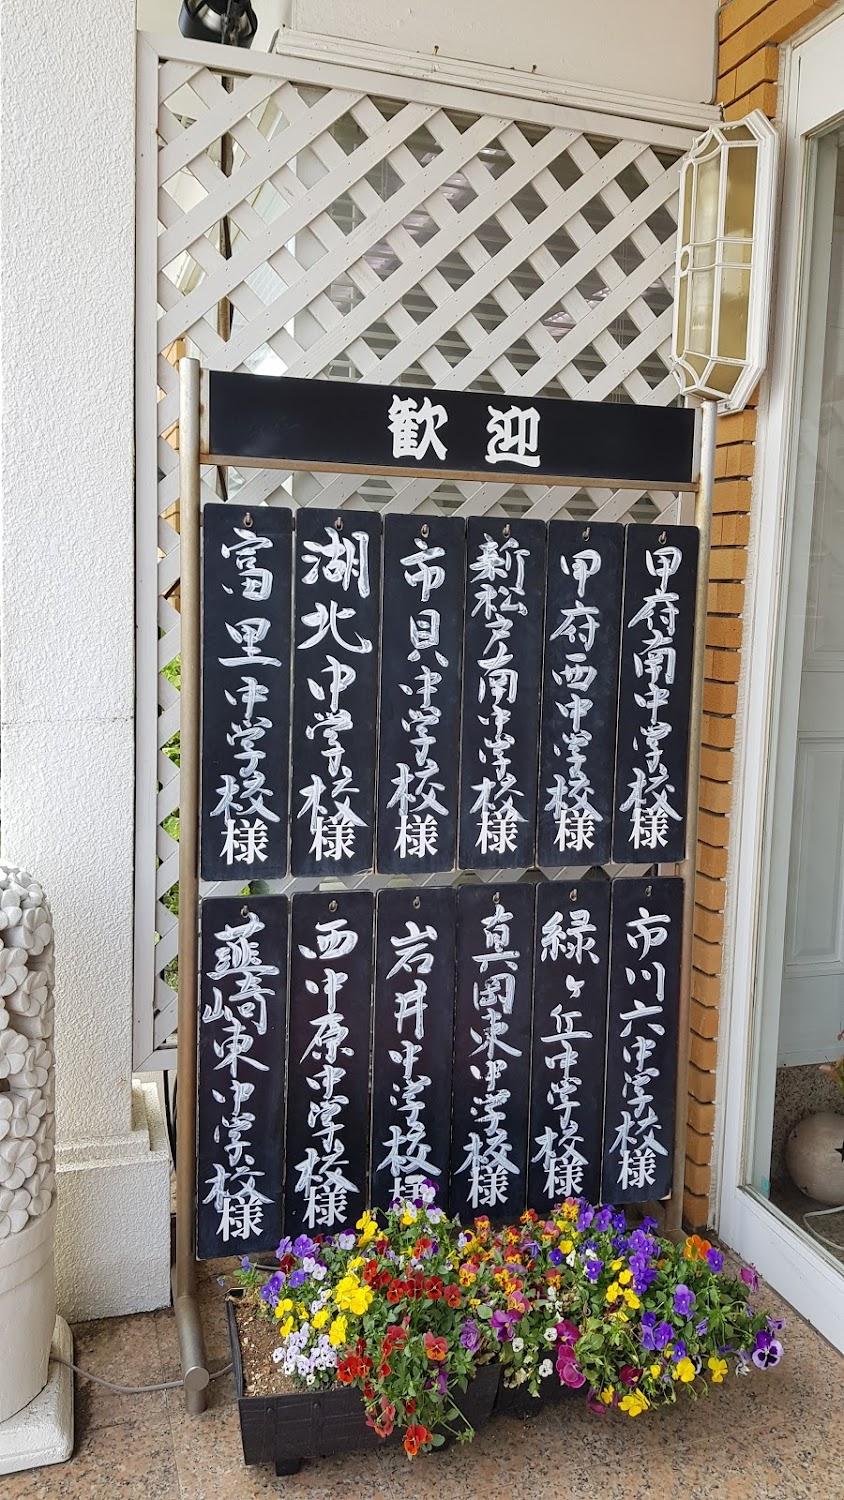 歓迎
甲府南中学校様
甲府西中学校様
新松戸南中学校様
市貝中学校様
湖北中学校様
富里中学校様
市川六中学校様
緑ヶ丘中学校様
真岡東中学校様
岩井中学校様
西中原中学校様
韮崎東中学校様